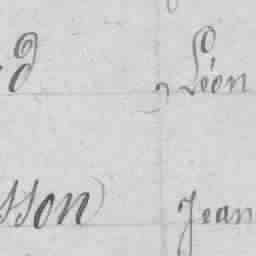 d Léon
sson Jean